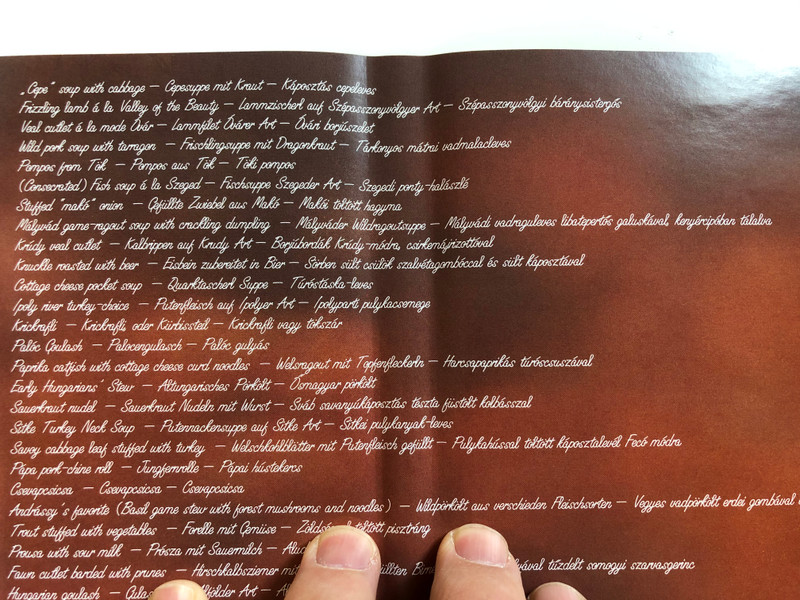 „Cepe" soup with cabbage – Cepesuppe mit Kraut – Káposztás cepeleves
Frizzling lamb á la Valley of the Beauty – Lammzischerl auf Szépasszonyvölgyer Art – Szépasszonyvölgyi báránysistergős
Veal cutlet á la mode Óvár – Lammfilet Óvárer Art – Óvári borjúszelet
Wild pork soup with taragon – Frischlingsuppe mit Dragonkraut – Tárkonyos mátrai vadmalacleves
Pompos from Tök – Pompos aus Tök – Töki pompos
(Consecrated) Fish soup á la Szeged – Fischsuppe Szegeder Art – Szegedi ponty-halászlé
Stuffed "makó" onion – Gefüllte Zwiebel aus Makó – Makói töltött hagyma
Mályvád game-ragout soup with crackling dumpling – Mályváder Wildragoutsuppe – Mályvádi vadraguleves libatepertős galuskával, kenyércipóban tálalva
Krúdy veal cutlet – Kalbrippen auf Krudy Art – Borjúbordák Krúdy-módra, csirkemájrizottóval
Knuckle roasted with beer – Eisbein zubereitet in Bier – Sörben sült csülök szalvétagombóccal és sült káposztával
Cottage cheese pocket soup – Quarktascherl Suppe – Túróstáska-leves
Ipoly river turkey-choice – Putenfleisch auf Ipolyer Art – Ipolyparti pulykacsemege
Krickrafli – Krickrafli oder Kürbissteil – Krickrafli vagy tökszár
Palóc Goulash – Palocengulasch – Palóc gulyás
Paprika catfish with cottage cheese curd noodles – Welsragout mit Topfenfleckerln – Harcsapaprikás túróscsuszával
Early Hungarians' Stew – Altungarisches Pörkölt – Ősmagyar pörkölt
Sauerkraut nudel – Sauerkraut Nudeln mit Wurst – Sváb savanyúkáposztás tészta füstölt kolbásszal
Sitke Turkey Neck Soup – Putennackensuppe auf Sitke Art – Sitkei pulykanyak-leves
Savoy cabbage leaf stuffed with turkey – Welschkohlblätter mit Putenfleisch gefüllt – Pulykahússal töltött káposztalevél Fecó módra
Pápa pork-chine roll – Jungfernrolle – Pápai hústekercs
Csevapcsicsa – Csevapcsicsa – Csevapcsicsa
Andrássy's favorite (Basil game stew with forest mushrooms and noodles) – Wildpörkölt aus verschieden Fleischsorten – Vegyes vadpörkölt erdei gombával
Trout stuffed with vegetables – Forelle mit Gemüse – töltött pisztráng
Prousa with sour milk – Prósza mit Sauermilch –
Fawn cutlet barded with prunes – Hirschkalbsziemer mit tűzdelt somogyi szarvasgerinc
Hungarian goulash –